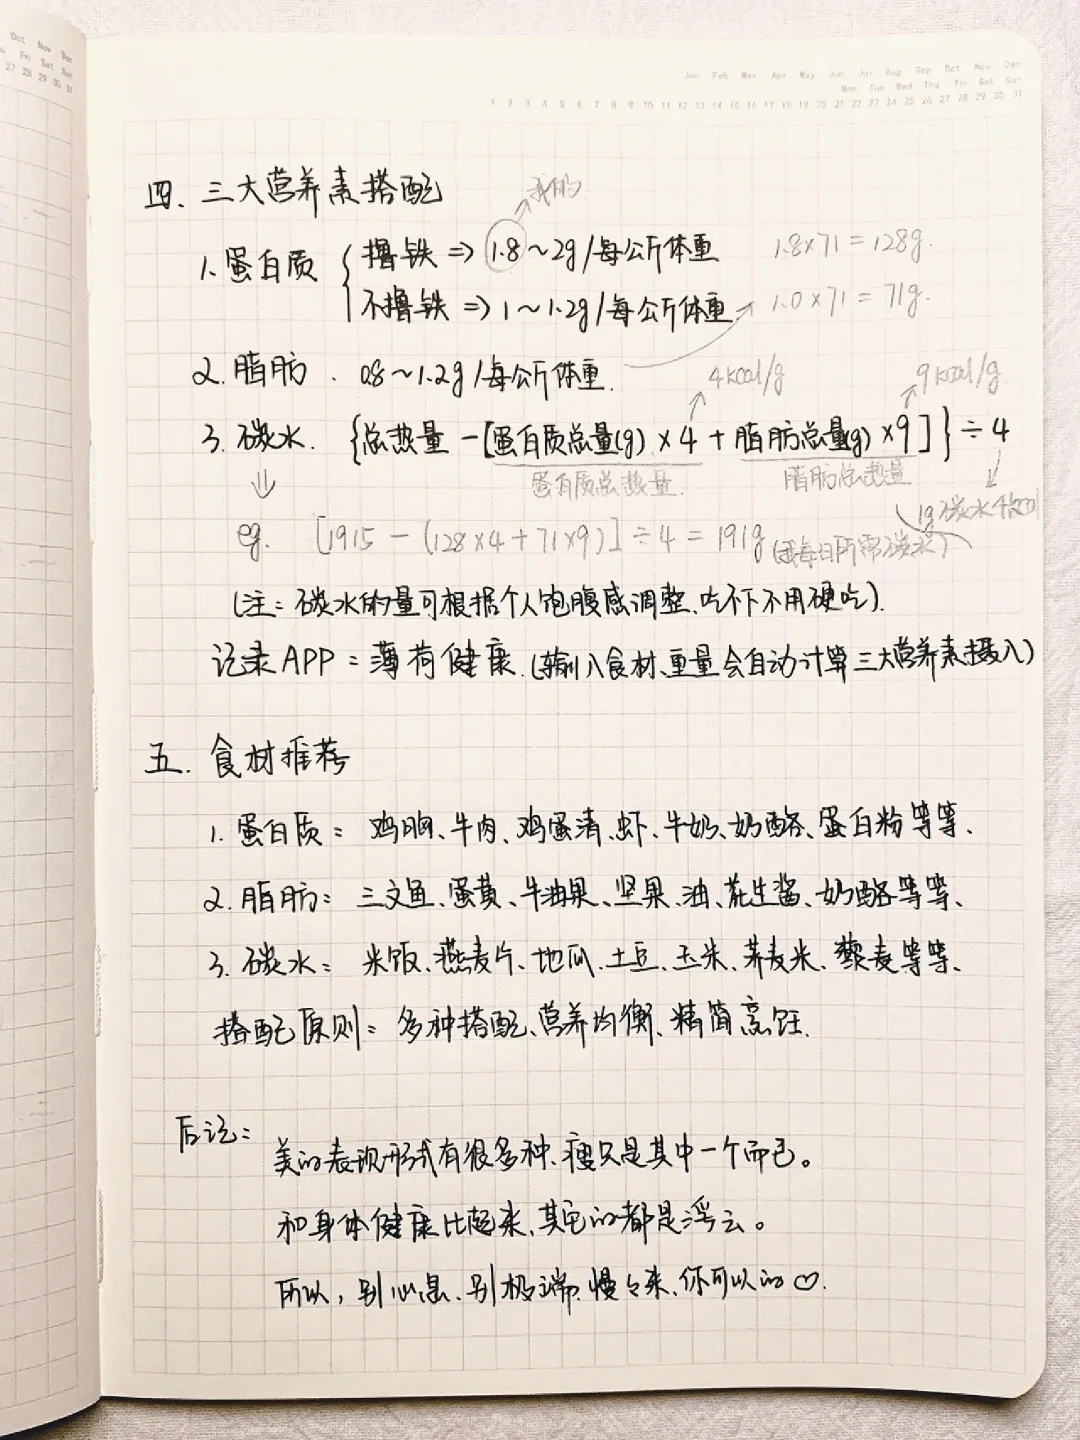 Oct Nov Dec
Fri Sat Sun
27 28 29 30 31
Jan Feb Mar Apr May Jun Jul Aug Sep Oct Nov Dec
Mon Tue Wed Thu Fri Sat Sun
1 2 3 4 5 6 7 8 9 10 11 12 13 14 15 16 17 18 19 20 21 22 23 24 25 26 27 28 29 30 31
四、三大营养素搭配
我的
1.蛋白质 { 撸铁 => 1.8~2g/每公斤体重 1.8×71=128g.
不撸铁 => 1~1.2g/每公斤体重 1.0×71=71g.
2.脂肪. 0.8~1.2g/每公斤体重.
4kcal/g 9kcal/g
3.碳水. {总热量-[蛋白质总量(g)×4+脂肪总量(g)×9]}÷4
蛋白质总热量. 脂肪总热量
1g碳水4kcal
eg. [1915-(128×4+71×9)]÷4=191g(我每日所需碳水)
(注:碳水的量可根据个人饱腹感调整、吃不下不用硬吃).
记录APP:薄荷健康.(输入食材、重量会自动计算三大营养素摄入)
五.食材推荐
1.蛋白质:鸡胸、牛肉、鸡蛋清、虾、牛奶、奶酪、蛋白粉等等、
2.脂肪:三文鱼、蛋黄、牛油果、坚果、油、花生酱、奶酪等等、
3.碳水:米饭、燕麦片、地瓜、土豆、玉米、荞麦米、藜麦等等、
搭配原则:多种搭配、营养均衡、精简烹饪.
后记:
美的表现形式有很多种、瘦只是其中一个而已。
和身体健康比起来、其它的都是浮云。
所以,别心急、别极端、慢々来、你可以的♡.